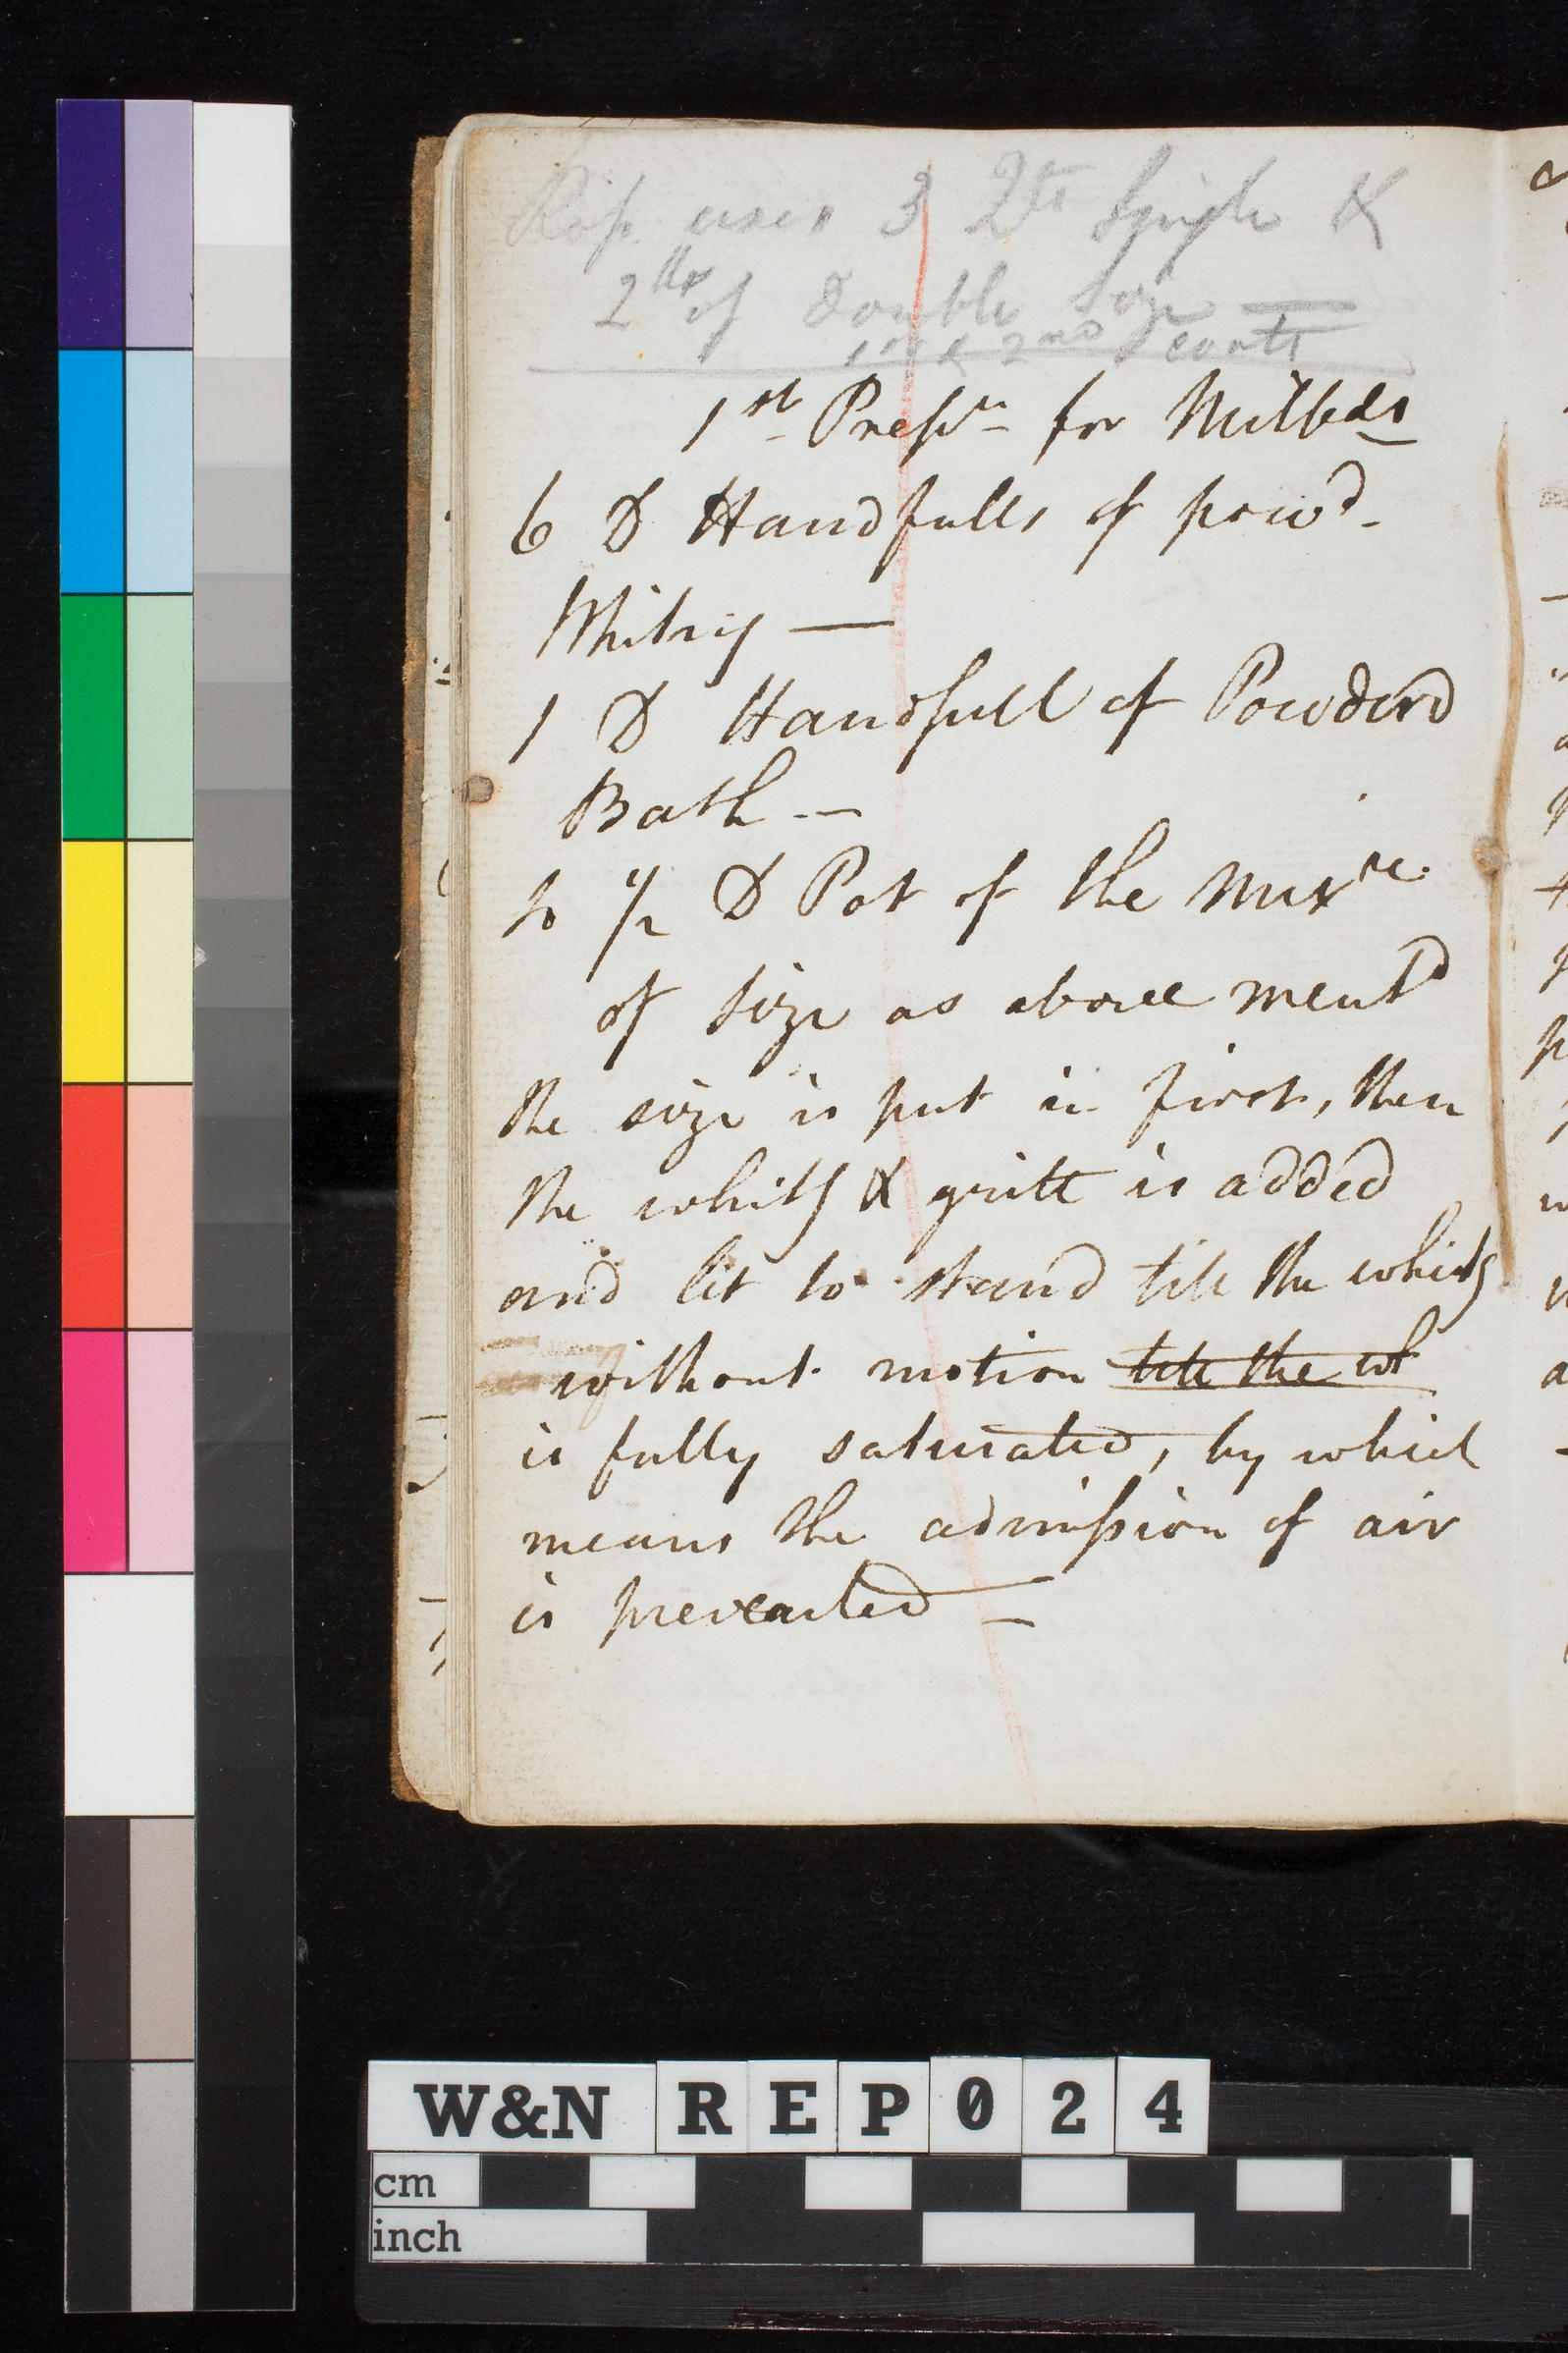 Ross uses 3 Qts Single &
2 lbs of Double Size
1st & 2nd coats
1st Prepn for Millbds
6 D Handfulls of powd
Whiting —
1 D Handfull of Powderd
Bath —
to 1/2 D Pot of the Mixre
of size as above mentd
the size is put in first, then
the whitg & gritt is added
and let to stand till the whitg
without motion till the wh
is fully saturated, by which
means the admission of air
is prevented —
W&N REP024
cm
inch